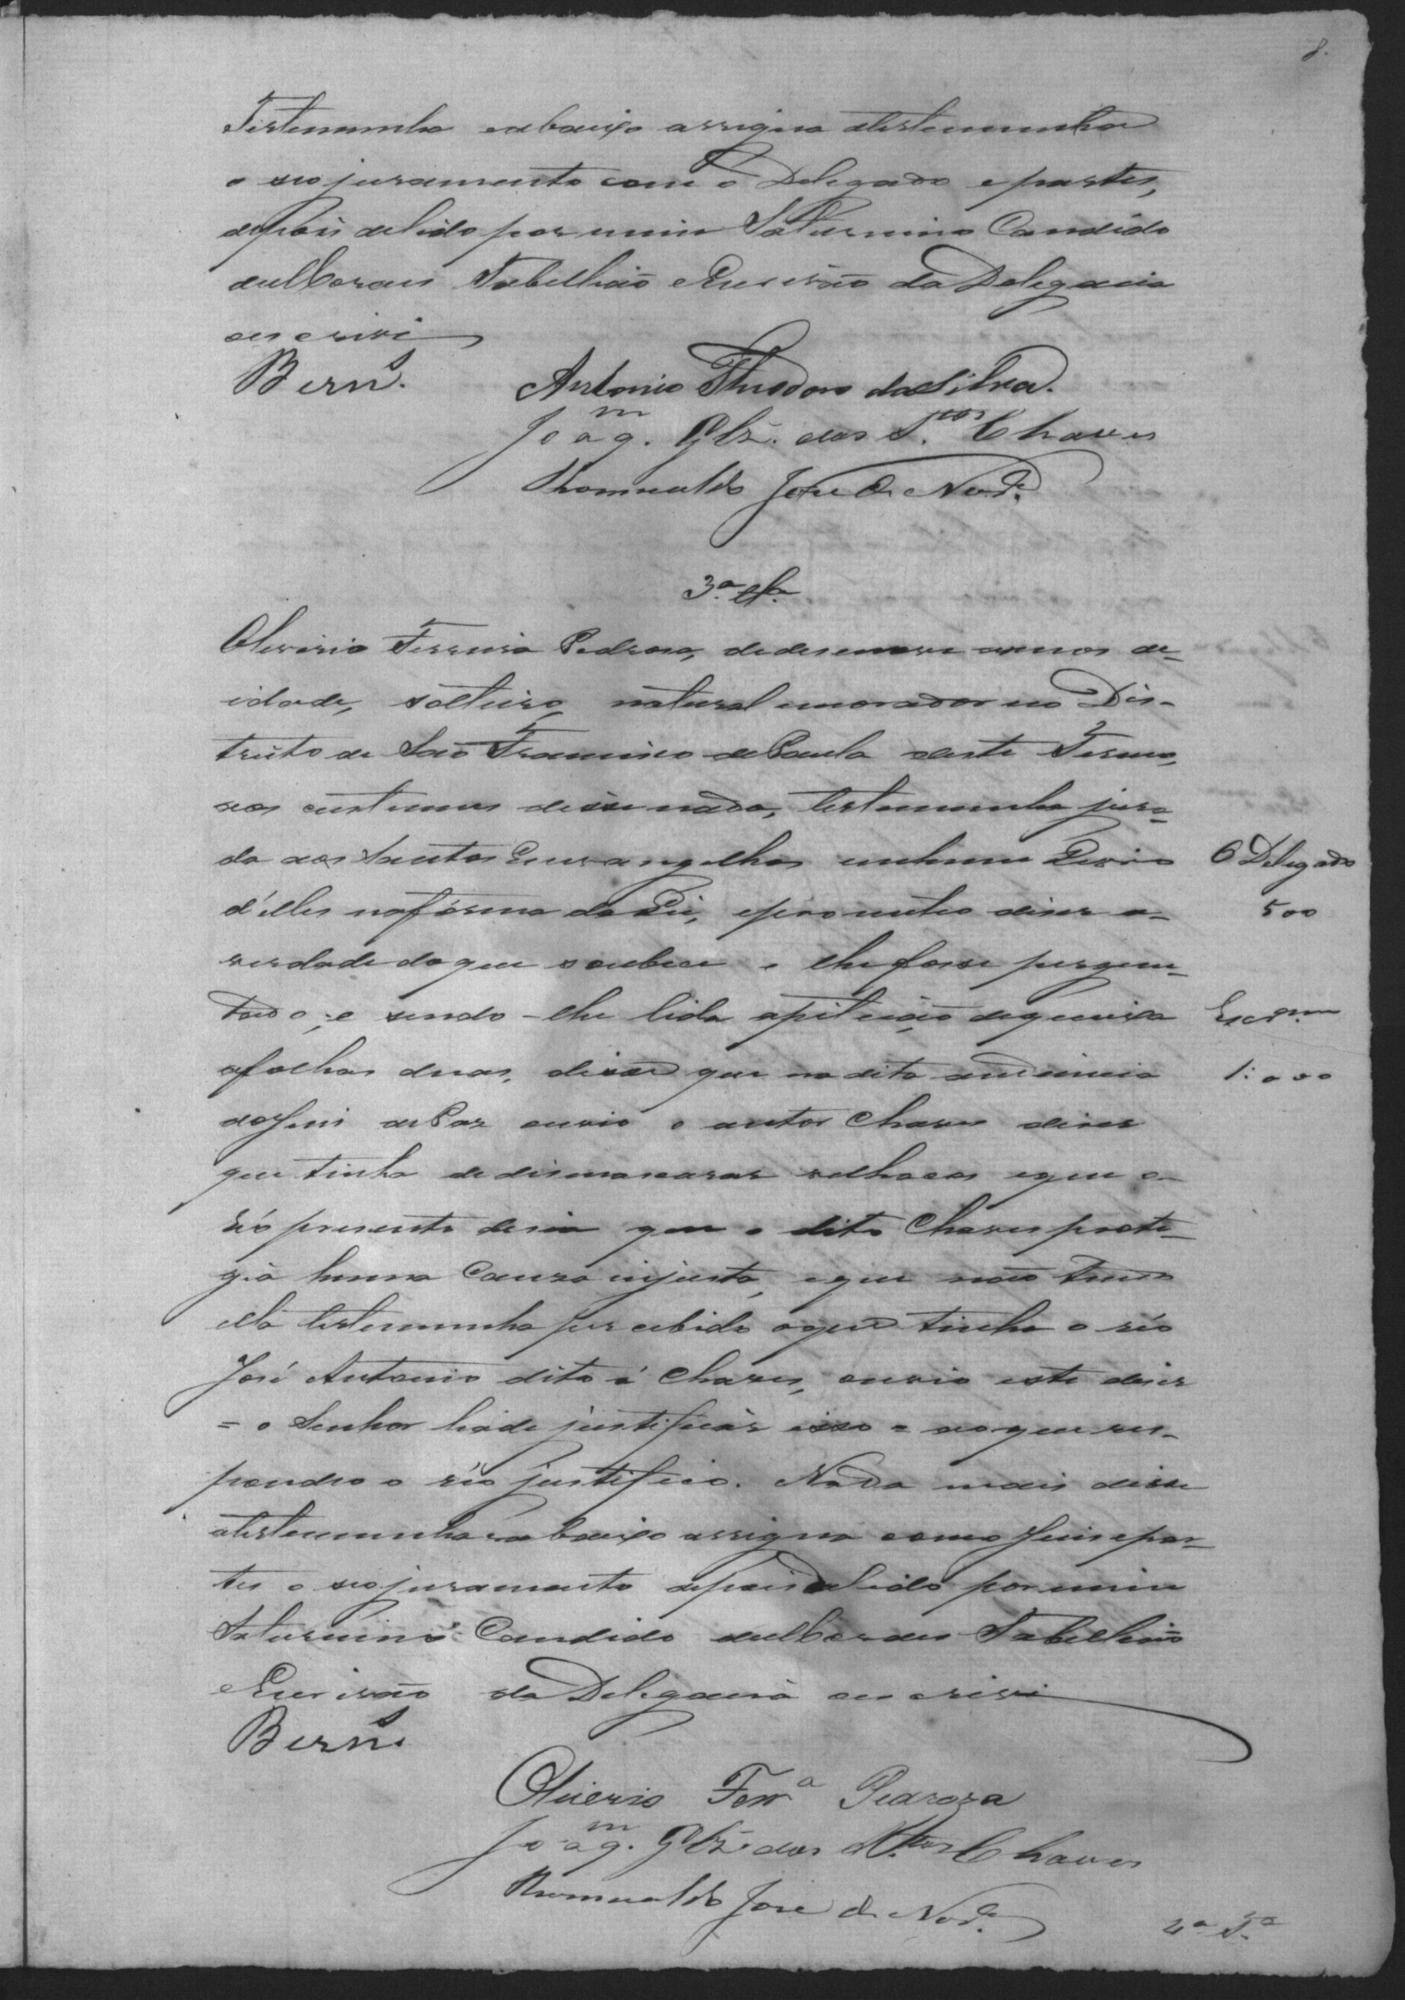 8.
Testemunha eabaixo assigna atestemunha
o seo juramento com o Delegado epartes,
depois delido por mim Saturnino Candido
deMoraes Tabellião eEscrivão da Delegacia
escrivi
Bern.s
Antonio Theodoro daSilva.
Joaq.m Glz. dos S.tos Chaves
Romualdo José de
3.ª T.ª
Oliverio Ferreira Pedroso, dedesenove annos de
idade, solteiro, natural emorador no Dis-
tricto de São Francisco dePaula deste Termo,
aos custumes disse nada, testemunha jura-
da aos Santos Euvangelhos emhum Livro
d'elles nafórma daLei, eprometteo diser a
verdade do que soubece e lhe fosse pergun-
tado; e sendo-lhe lida apitição dequeixa
afolhas duas, disse que na dita audiencia
doJuis dePaz ouvio o autor Chaves diser
que tinha dedesmascarar velhacos eque o
réo presente desia que o dito Chaves prote-
gia huma Causa injusta, eque não tendo
ella testemunha percebido oque tinha o réo
José Antonio dito á Chaves, ouvio este diser
= o Senhor hade justificár isso = aoque res-
pondeo o réo justifico. Nada mais disse
atestemunha eabaixo assigna como Juis epar-
tes o seo juramento depois delido por mim
Saturnino Candido deMoraes Tabellião
eEscrivão da Delegacia escrivi
Bern.s
Oliverio Ferr.ª Pedroza
Joaq.m Glz. dos S.tos Chaves
Romualdo José de
4.ª T.ª
O Delegado
500
Escr.am
1:000